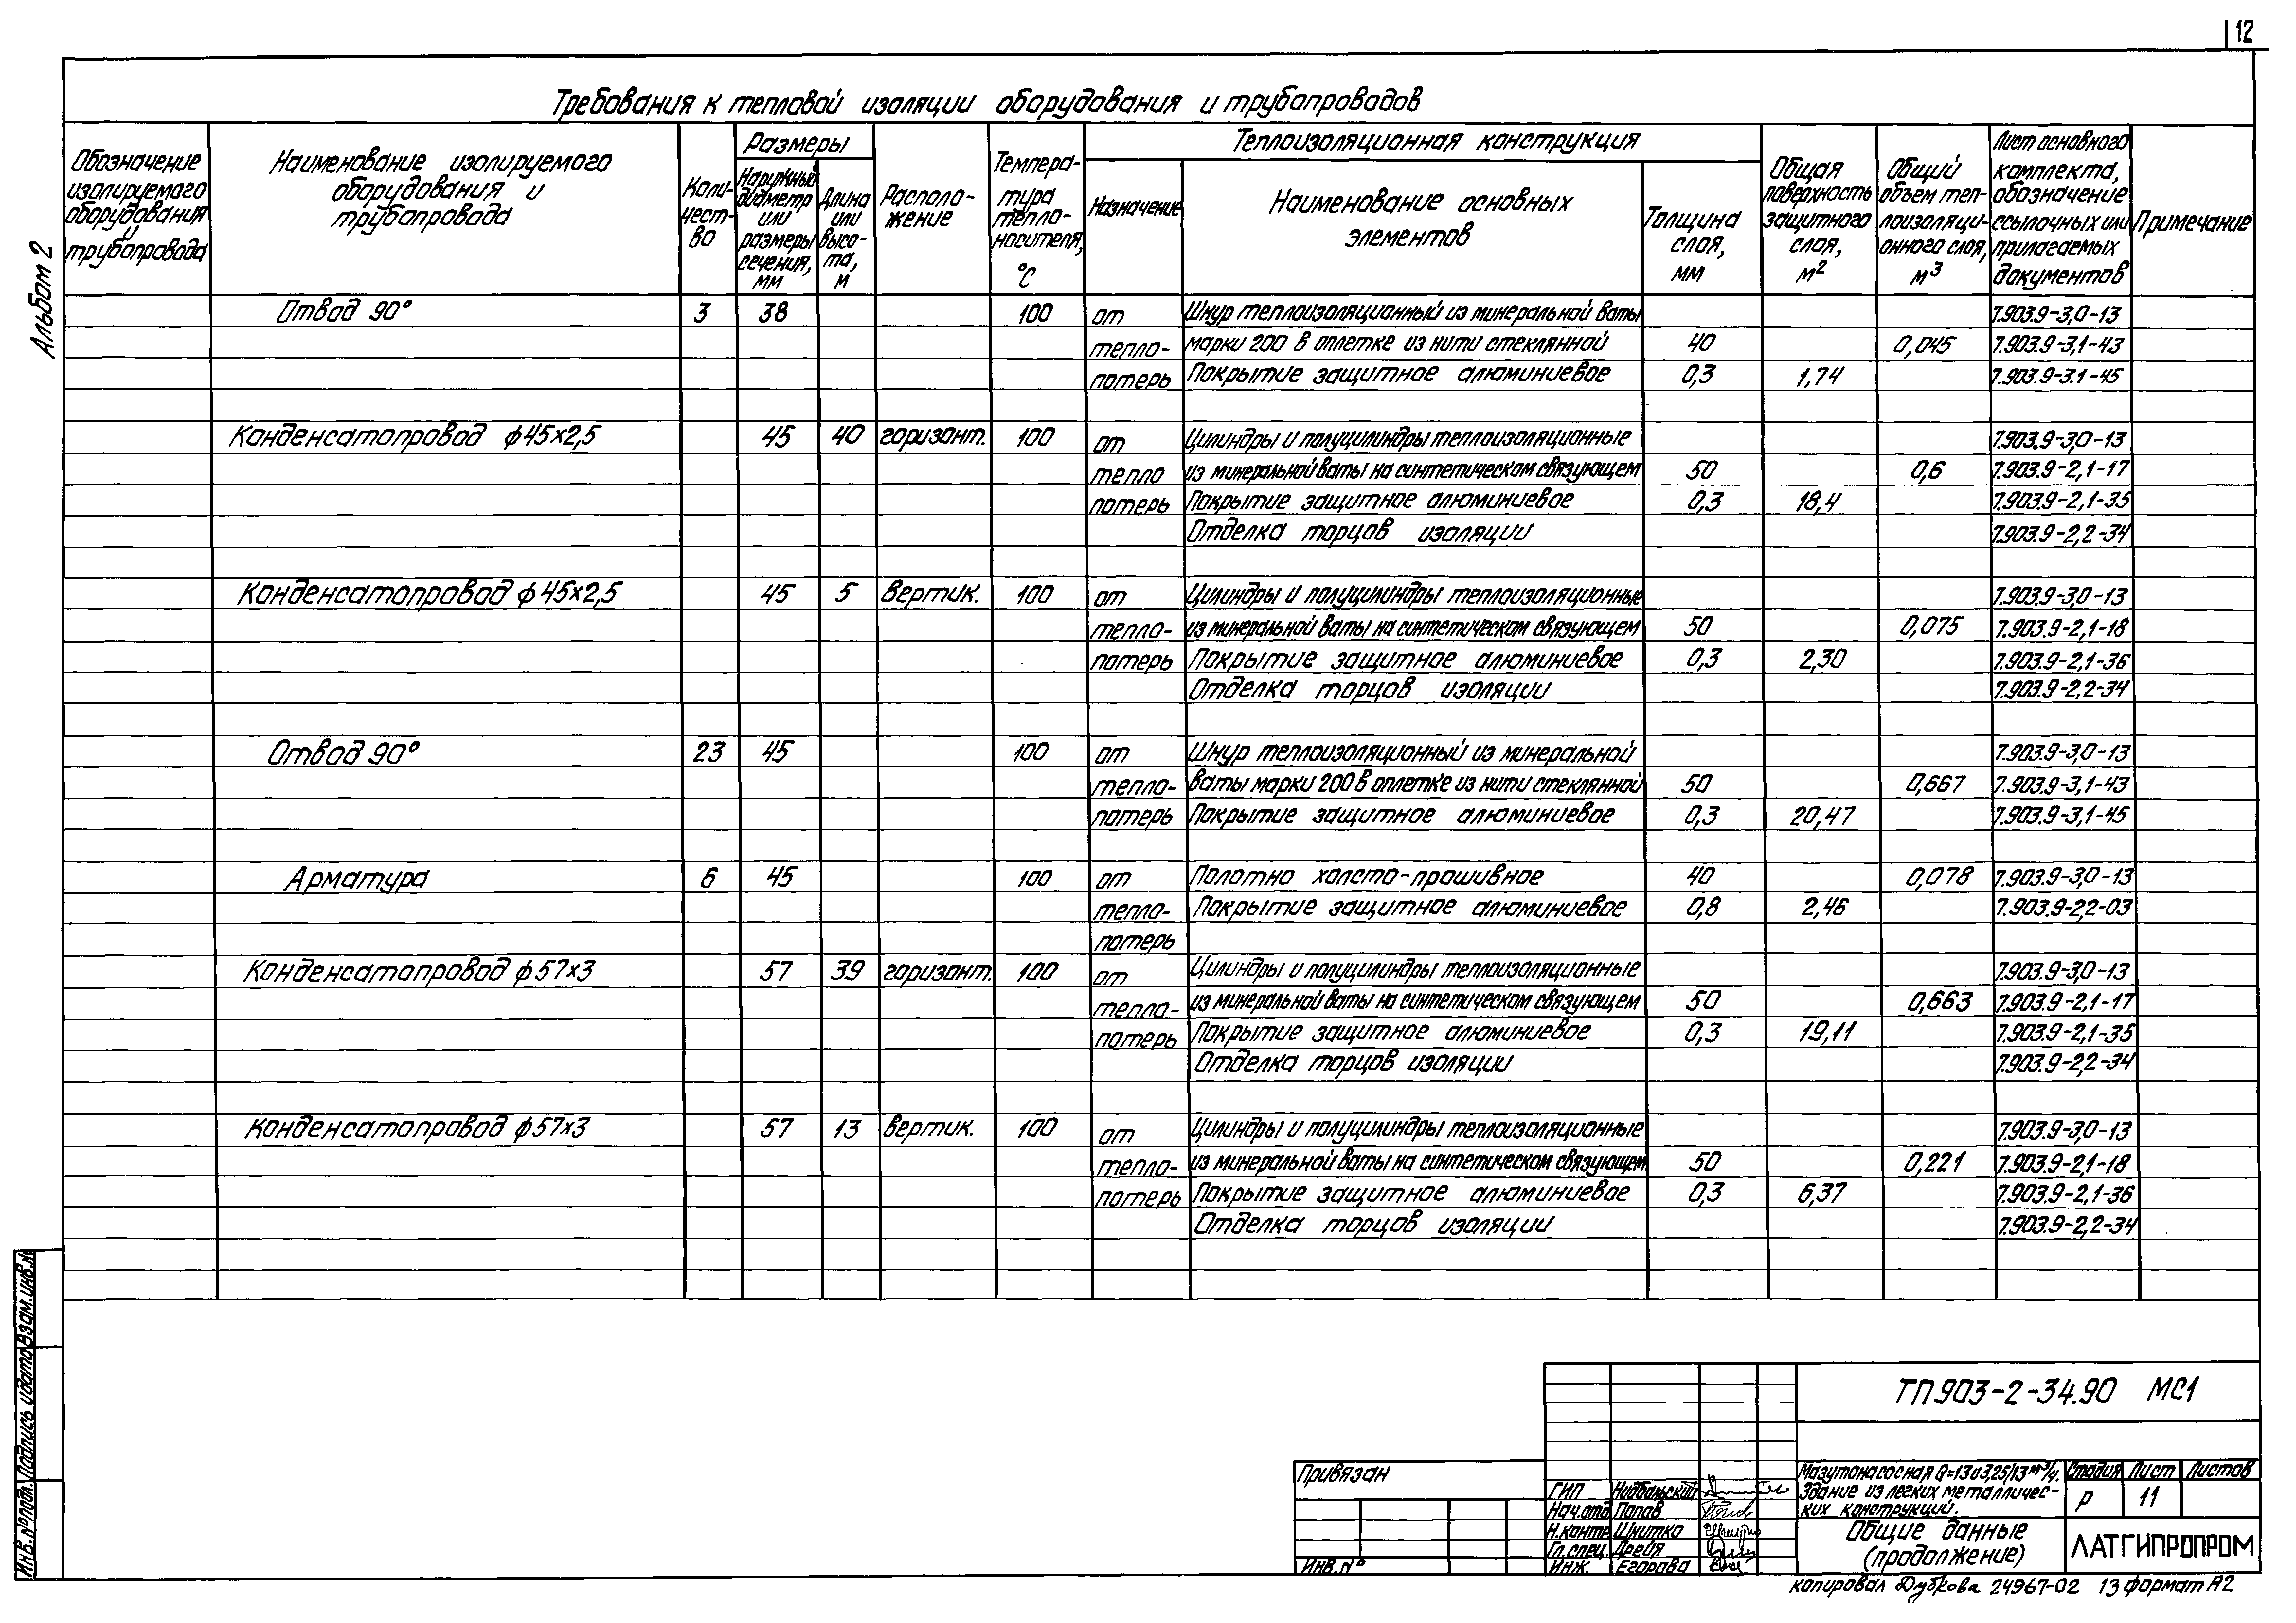 12
Альбом 2
Требования к тепловой изоляции оборудования и трубопроводов
Обозначение изолируемого оборудования и трубопровода
Наименование изолируемого оборудования и трубопровода
Коли-чест-во
Размеры
Наружный диаметр или размеры сечения, мм
Длина или высо-та, м
Располо-жение
Темпера-тура тепло-носителя, °С
Теплоизоляционная конструкция
Назначение
Наименование основных элементов
Толщина слоя, мм
Общая поверхность защитного слоя, м²
Общий объем теп-лоизоляци-онного слоя, м³
Лист основного комплекта, обозначение ссылочных или прилагаемых документов
Примечание
Отвод 90° 3 38 100 от Шнур теплоизоляционный из минеральной ваты 7.903.9-3,0-13
тепло- марки 200 в оплетке из нити стеклянной 40 0,045 7.903.9-3,1-43
потерь Покрытие защитное алюминиевое 0,3 1,74 7.903.9-3.1-45
Конденсатопровод ф45х2,5 45 40 горизонт. 100 от Цилиндры и полуцилиндры теплоизоляционные 7.903.9-3,0-13
тепло из минеральной ваты на синтетическом связующем 50 0,6 7.903.9-2,1-17
потерь Покрытие защитное алюминиевое 0,3 18,4 7.903.9-2,1-35
Отделка торцов изоляции 7.903.9-2,2-34
Конденсатопровод ф45х2,5 45 5 вертик. 100 от Цилиндры и полуцилиндры теплоизоляционные 7.903.9-3,0-13
тепло- из минеральной ваты на синтетическом связующем 50 0,075 7.903.9-2,1-18
потерь Покрытие защитное алюминиевое 0,3 2,30 7.903.9-2,1-36
Отделка торцов изоляции 7.903.9-2,2-34
Отвод 90° 23 45 100 от Шнур теплоизоляционный из минеральной 7.903.9-3,0-13
тепло- ваты марки 200 в оплетке из нити стеклянной 50 0,667 7.903.9-3,1-43
потерь Покрытие защитное алюминиевое 0,3 20,47 7.903.9-3,1-45
Арматура 6 45 100 от Полотно холсто-прошивное 40 0,078 7.903.9-3,0-13
тепло- Покрытие защитное алюминиевое 0,8 2,46 7.903.9-2,2-03
потерь
Конденсатопровод ф57х3 57 39 горизонт. 100 от Цилиндры и полуцилиндры теплоизоляционные 7.903.9-3,0-13
тепло- из минеральной ваты на синтетическом связующем 50 0,663 7.903.9-2,1-17
потерь Покрытие защитное алюминиевое 0,3 19,11 7.903.9-2,1-35
Отделка торцов изоляции 7.903.9-2,2-34
Конденсатопровод ф57х3 57 13 вертик. 100 от Цилиндры и полуцилиндры теплоизоляционные 7.903.9-3,0-13
тепло- из минеральной ваты на синтетическом связующем 50 0,221 7.903.9-2,1-18
потерь Покрытие защитное алюминиевое 0,3 6,37 7.903.9-2,1-36
Отделка торцов изоляции 7.903.9-2,2-34
Взам.инв.№
Подпись и дата
Инв.№ подл.
ТП 903-2-34.90 МС1
Привязан
Инв.№
ГИП Нидбальский
Нач.отд. Попов
Н.контр. Шнитко
Гл.спец. Дрейя
Инж. Егорова
Мазутонасосная Q=13 и 3,25/13 м³/ч.
Здание из легких металличес-
ких конструкций.
Стадия Лист Листов
Р 11
Общие данные
(продолжение)
ЛАТГИПРОПРОМ
копировал Дубкова 24967-02 13 формат А2